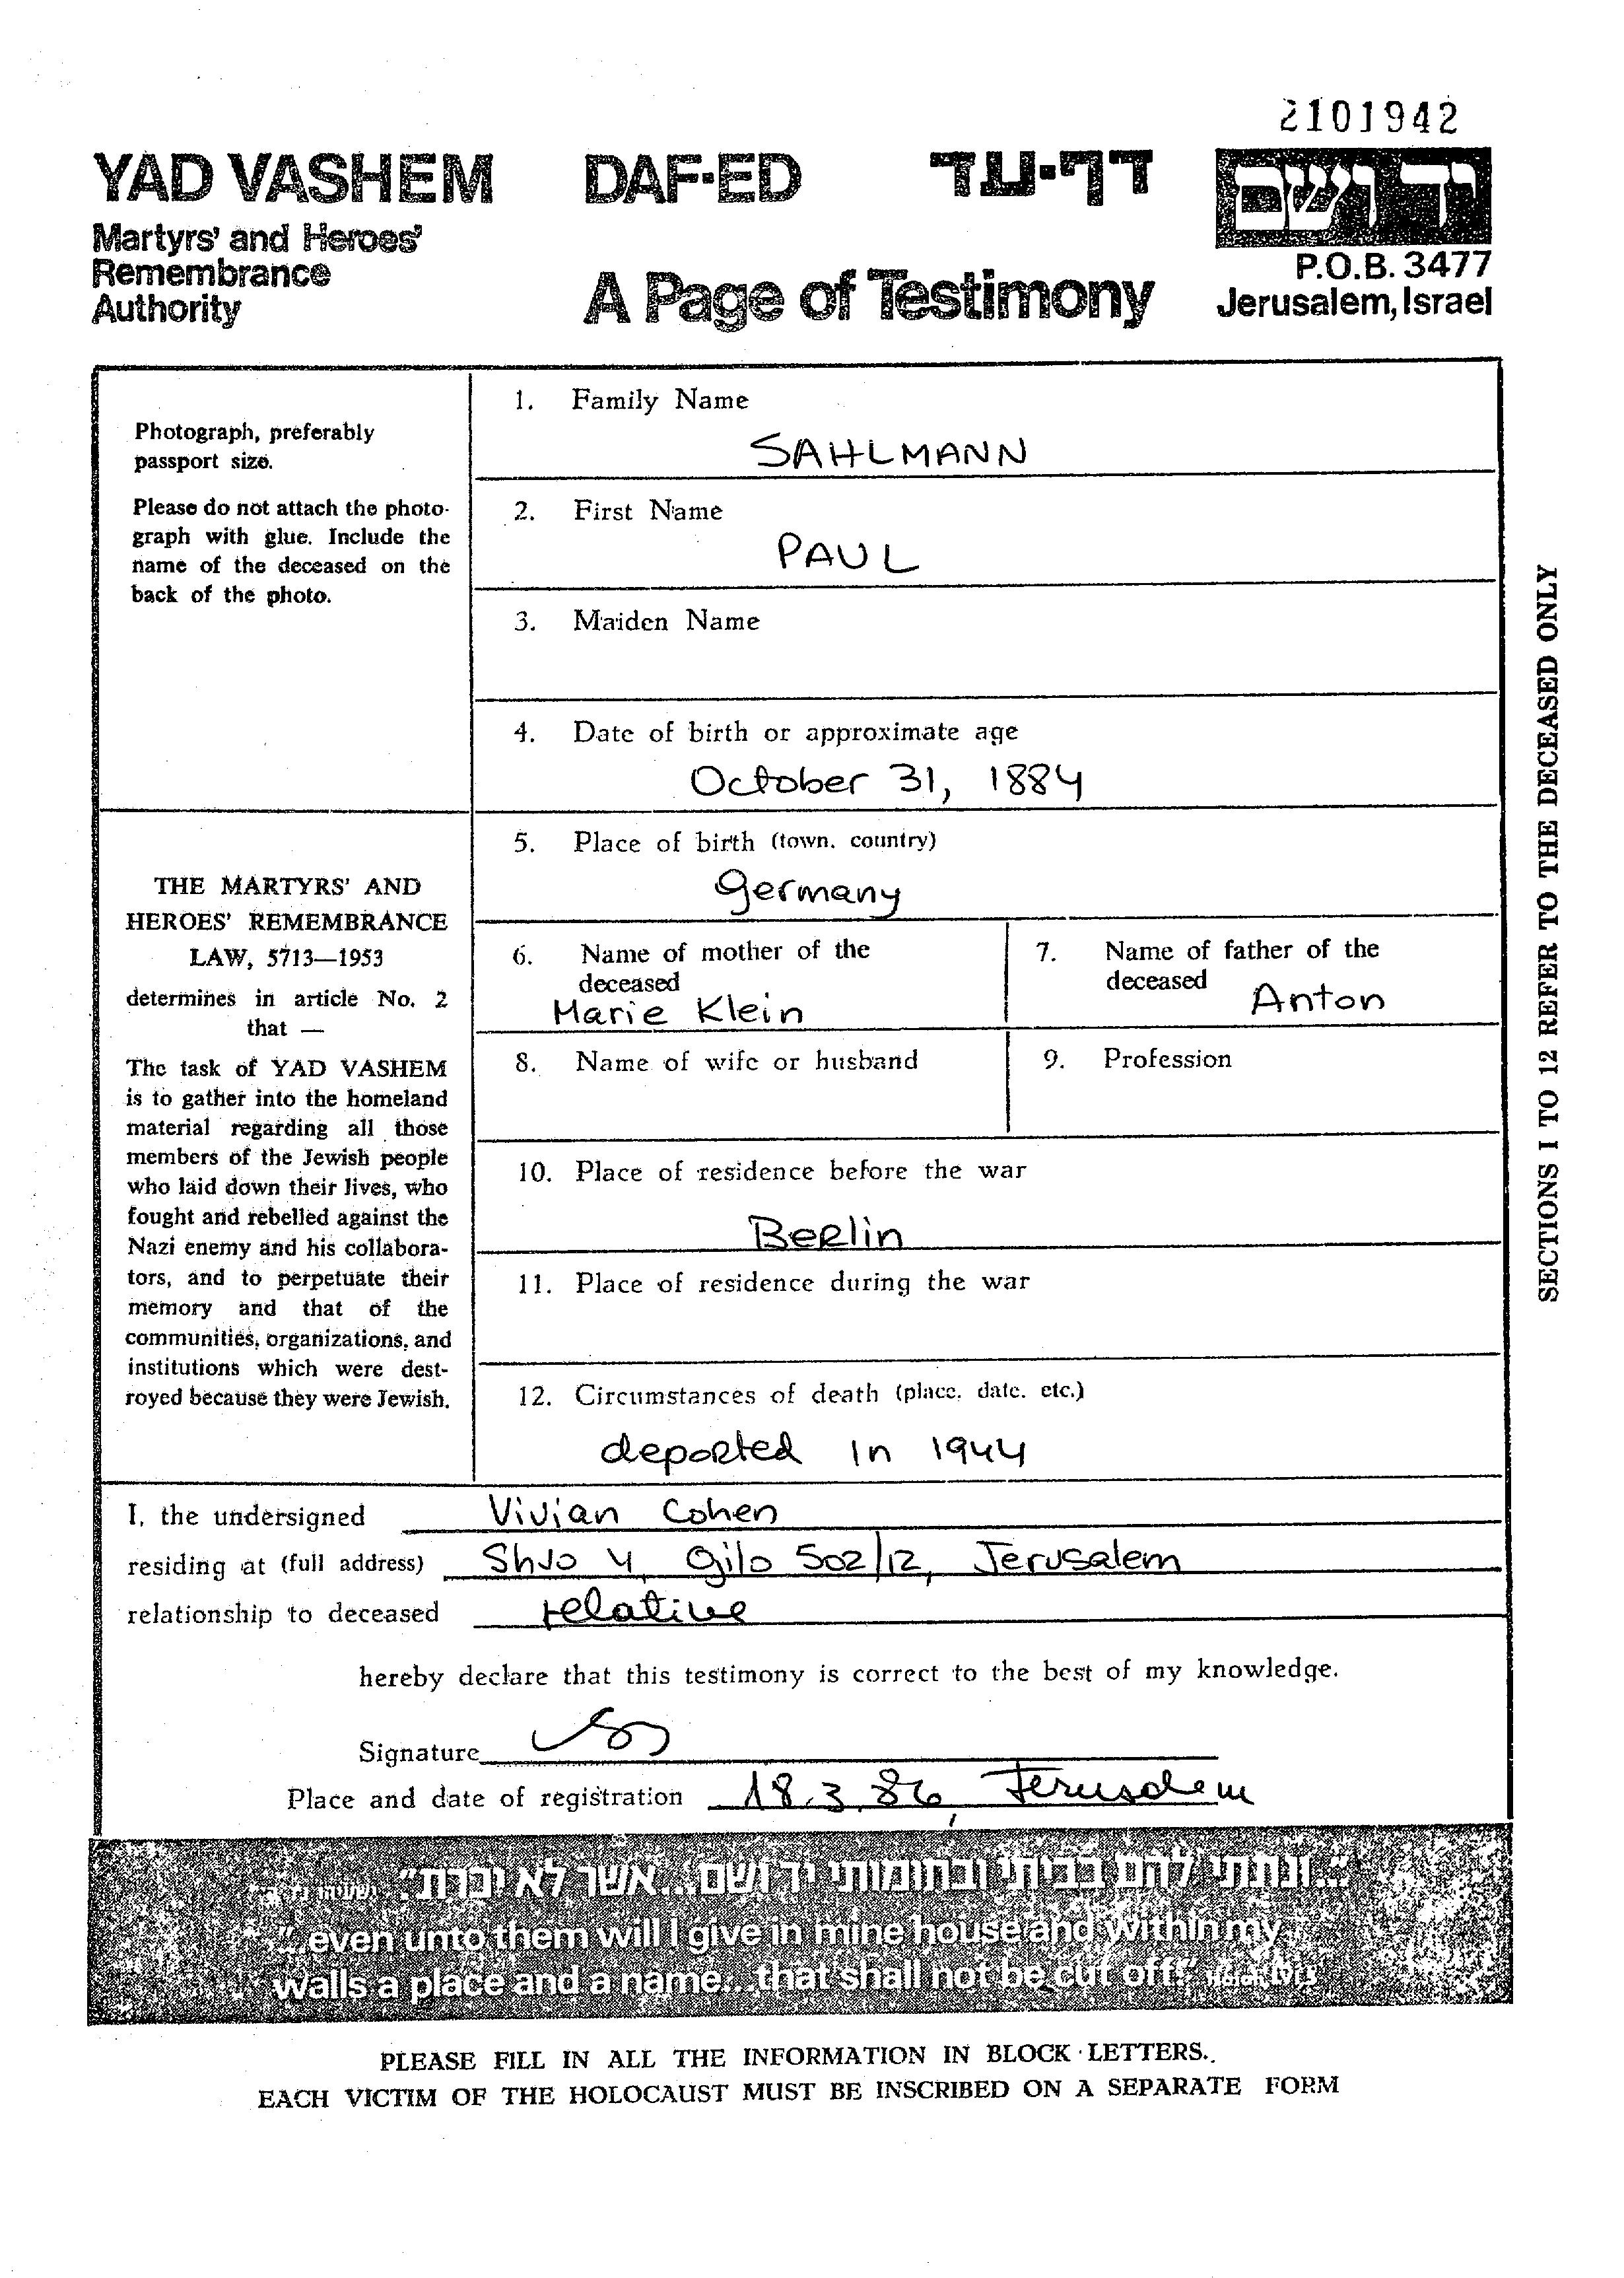 2101942
YAD VASHEM
Martyrs' and Heroes'
Remembrance
Authority
DAF-ED דף-עד
A Page of Testimony
יד ושם
P.O.B. 3477
Jerusalem, Israel
Photograph, preferably
passport size.
Please do not attach the photo-
graph with glue. Include the
name of the deceased on the
back of the photo.
THE MARTYRS' AND
HEROES' REMEMBRANCE
LAW, 5713—1953
determines in article No. 2
that —
The task of YAD VASHEM
is to gather into the homeland
material regarding all those
members of the Jewish people
who laid down their lives, who
fought and rebelled against the
Nazi enemy and his collabora-
tors, and to perpetuate their
memory and that of the
communities, organizations, and
institutions which were dest-
royed because they were Jewish.
1. Family Name
SAHLMANN
2. First Name
PAUL
3. Maiden Name
4. Date of birth or approximate age
October 31, 1884
5. Place of birth (town, country)
Germany
6. Name of mother of the
deceased
Marie Klein
7. Name of father of the
deceased
Anton
8. Name of wife or husband
9. Profession
10. Place of residence before the war
Berlin
11. Place of residence during the war
12. Circumstances of death (place, date, etc.)
deported in 1944
SECTIONS 1 TO 12 REFER TO THE DECEASED ONLY
I, the undersigned Vivian Cohen
residing at (full address) Shvo 4, Gilo 502/12, Jerusalem
relationship to deceased relative
hereby declare that this testimony is correct to the best of my knowledge.
Signature
Place and date of registration 18.3.86, Jerusalem
"...ונתתי להם בביתי ובחומותי יד ושם...אשר לא יכרת".
"...even unto them will I give in mine house and within my
walls a place and a name...that shall not be cut off."
PLEASE FILL IN ALL THE INFORMATION IN BLOCK LETTERS.
EACH VICTIM OF THE HOLOCAUST MUST BE INSCRIBED ON A SEPARATE FORM